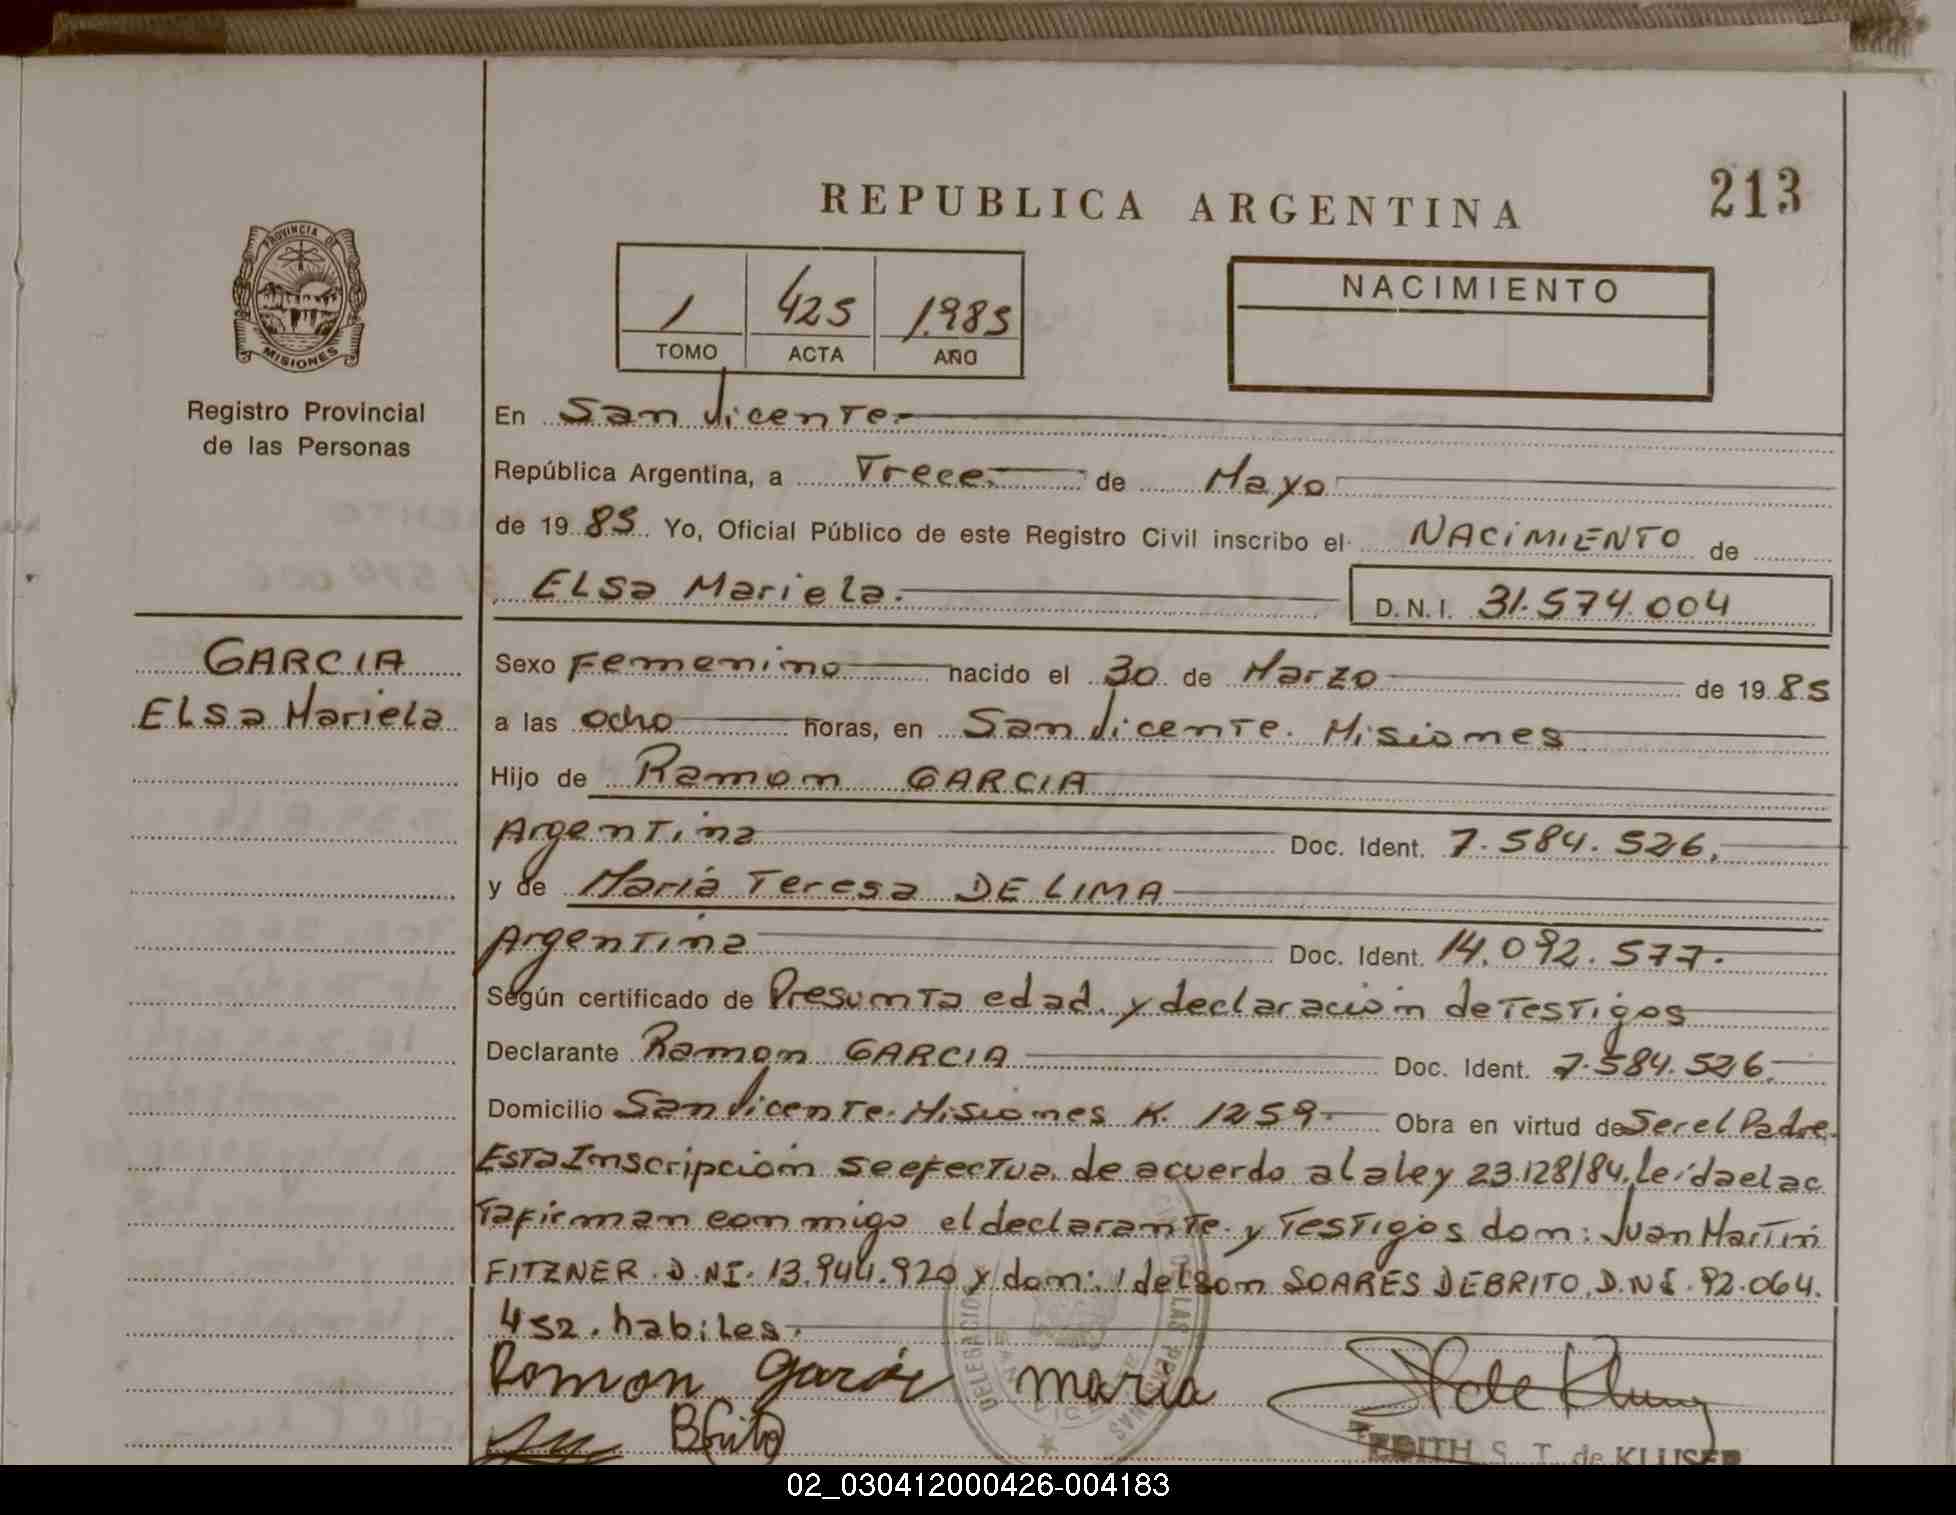 213
REPUBLICA ARGENTINA
PROVINCIA DE
MISIONES
Registro Provincial
de las Personas
1 425 1.985
TOMO ACTA AÑO
NACIMIENTO
En San Vicente.
República Argentina, a Trece de Mayo
de 19 85 Yo, Oficial Público de este Registro Civil inscribo el NACIMIENTO de
ELSa Mariela. D.N.I. 31.574.004
GARCIA
ELSa Mariela
Sexo Femenino nacido el 30 de Marzo de 19 85
a las ocho horas, en San Vicente. Misiones
Hijo de Ramon GARCIA
Argentina Doc. Ident. 7.584.526.
y de Maria Teresa DE LIMA
Argentina Doc. Ident. 14.092.577.
Según certificado de Presunta edad. y declaración de Testigos
Declarante Ramon GARCIA Doc. Ident. 7.584.526.
Domicilio San Vicente. Misiones K. 1259 Obra en virtud de Ser el Padre.
Esta Inscripción se efectua de acuerdo a la ley 23.128/84. Leída el ac
ta firman conmigo el declarante y Testigos don: Juan Martin
FITZNER D.NI. 13.944.920 y don: Idelson SOARES DEBRITO. D.NI. 92.064.
452. habiles.
Ramon Garcia maria
Brito
EDITH S. T. de KLUSER
02_030412000426-004183